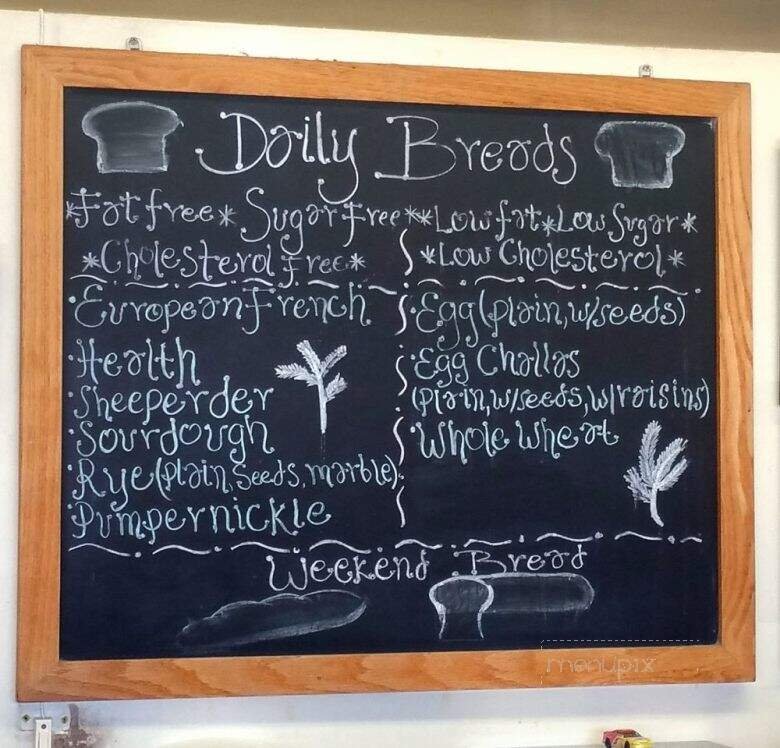 Daily Breads
*Fat free* Sugar Free*
*Cholesterol Free*
*Low fat*Low Sugar*
*Low Cholesterol*
·European French
·Health
·Sheeperder
·Sourdough
·Rye (Plain, Seeds, marble)
·Pumpernickle
·Egg (plain, w/seeds)
·Egg Challas
(Plain, w/seeds, w/raisins)
·Whole Wheat
Weekend Bread
menupix